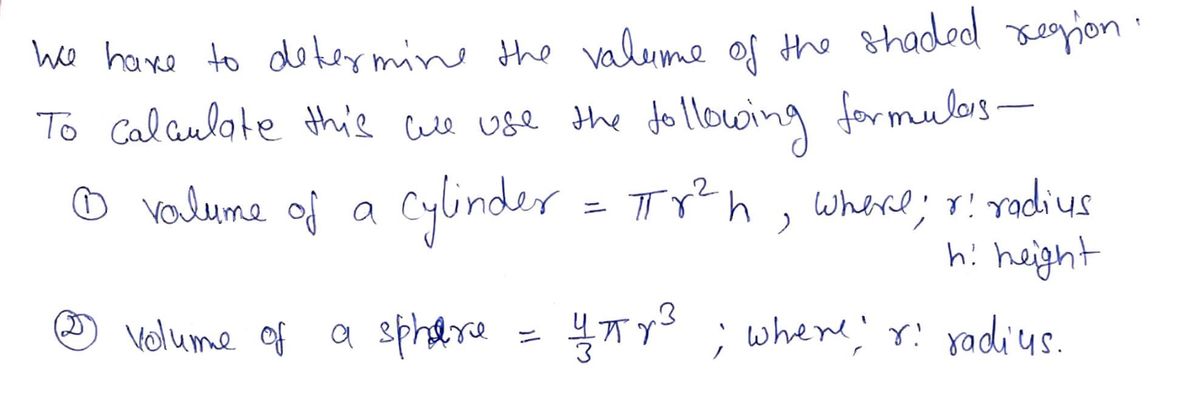 We have to determine the valume of the shaded region.
To calculate this we use the following formulas-
① volume of a cylinder = πr²h , where; r: radius
h: height
② Volume of a sphere = 4/3 πr³ ; where; r: radius.